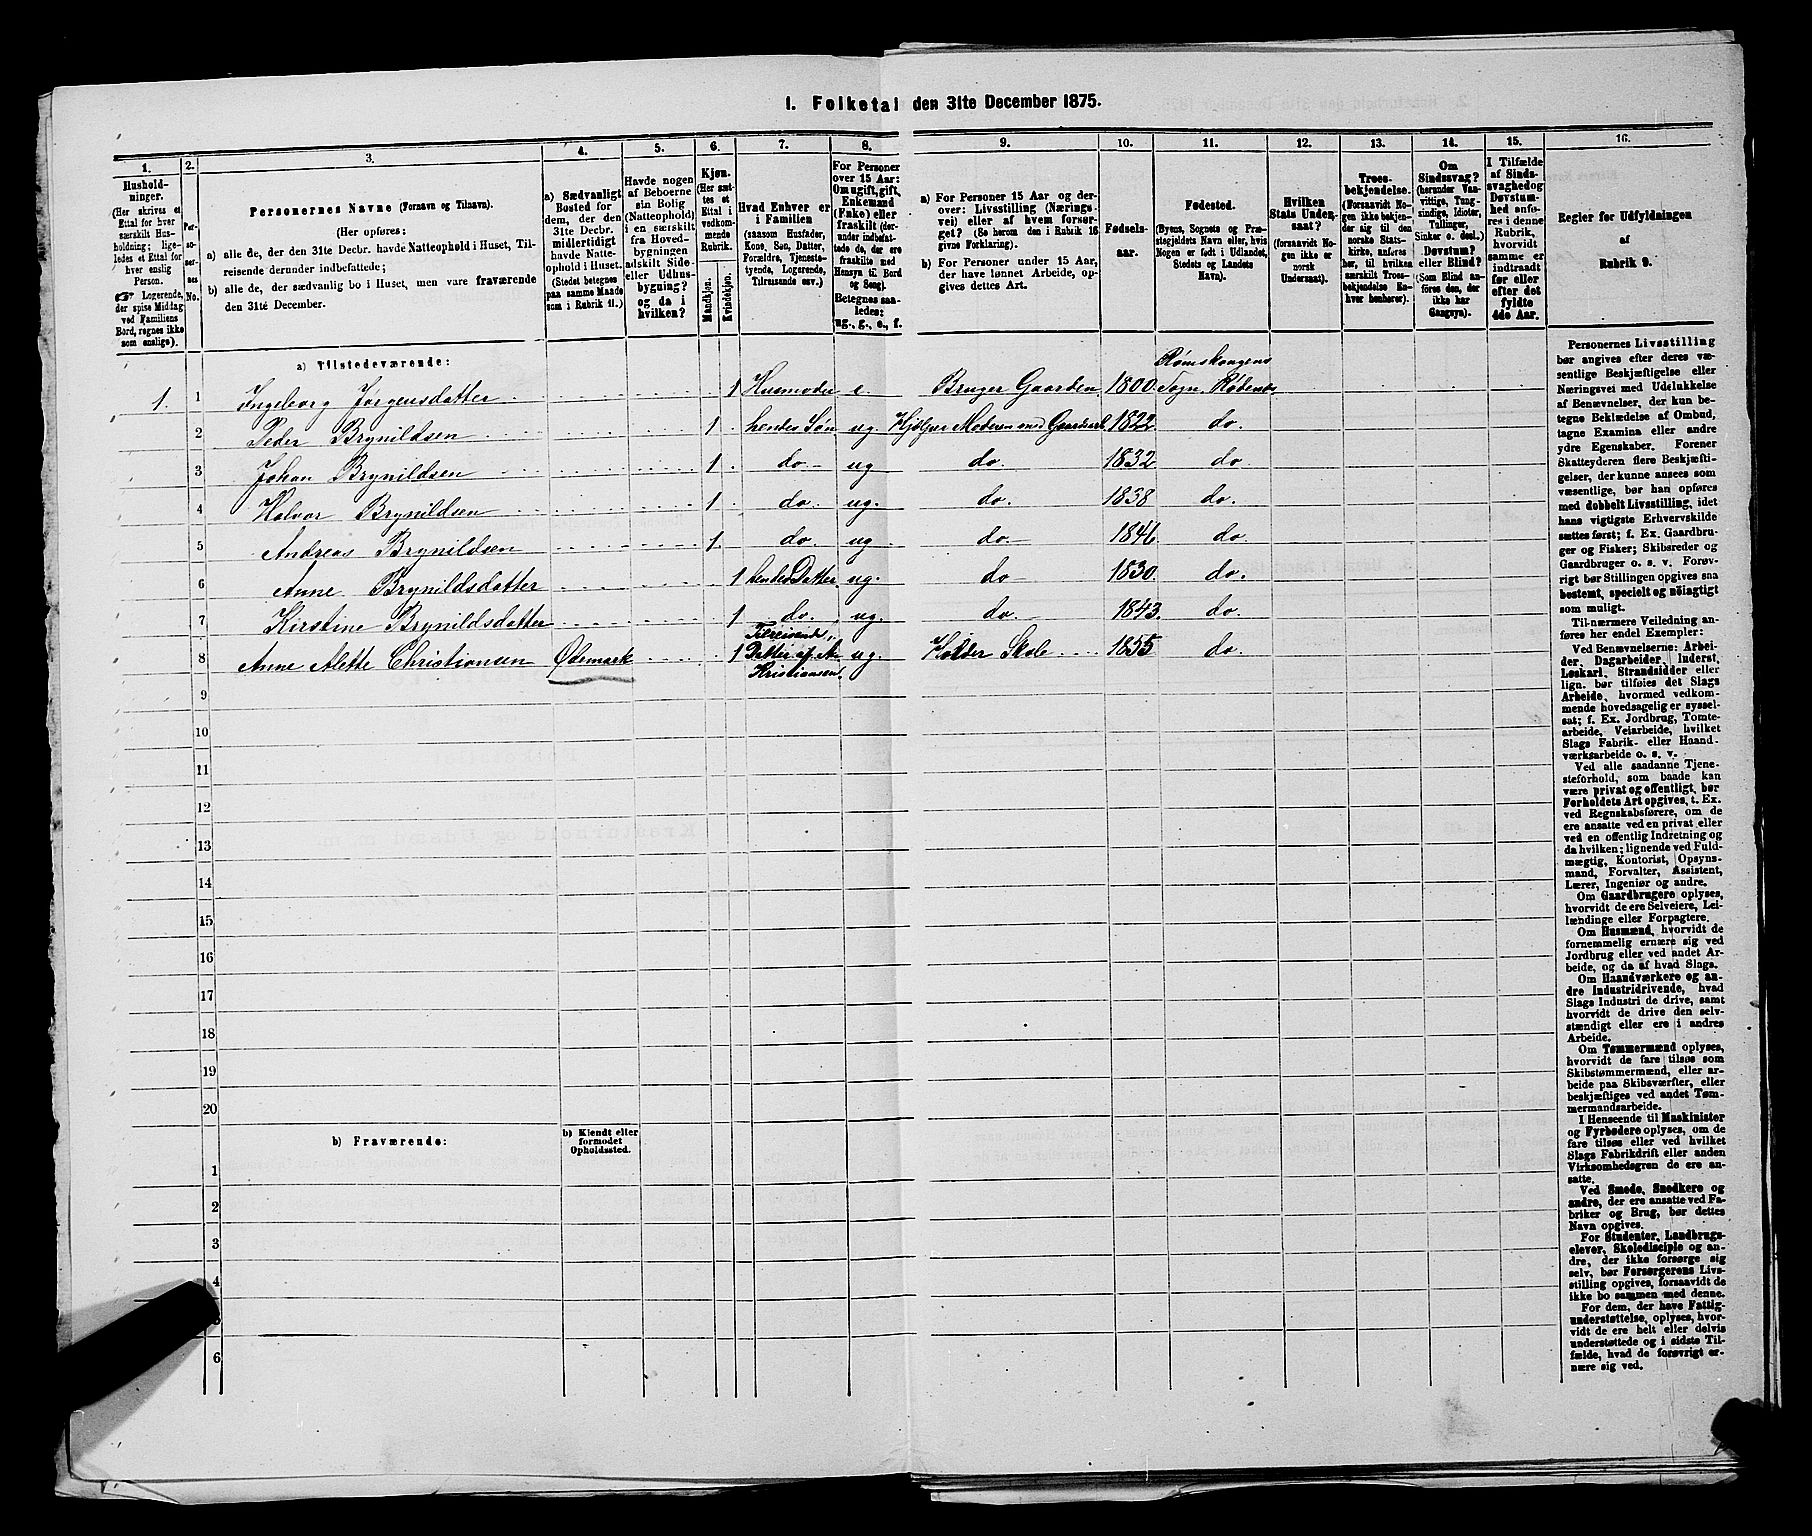 1. Folketal den 31te December 1875.
1. 2. 3. 4. 5. 6. 7. 8. 9. 10. 11. 12. 13. 14. 15. 16.
Hushold-
ninger.
(Her skrives et
Ettal for hver
særskilt Hus-
holdning; lige-
ledes et Ettal for
hver enslig
Person.
☞ Logerende,
der spise Middag
ved Familiens
Bord, regnes ikke
som enslige).
Per-
so-
ner-
nes
No.
Personernes Navne (Fornavn og Tilnavn).
(Her opføres:
a) alle de, der den 31te Decbr. havde Natteophold i Huset, Til-
reisende derunder indbefattede;
b) alle de, der sædvanlig bo i Huset, men vare fraværende
den 31té December.
a) Sædvanligt
Bosted for
dem, der den
31te Decbr.
midlertidigt
havde Natte-
ophold i Huset.
(Stedet betegnes
paa samme Maade
som i Rubrik 11.)
Havde nogen
af Beboerne
sin Bolig
(Natteophold)
i en særskilt
fra Hoved-
bygningen
adskilt Side-
eller Udhus-
bygning?
og da i
hvilken?
Kjøn.
(Her sæt-
tes et
Ettal i
vedkom-
mende
Rubrik.
Mandkjøn.
Kvindekjøn.
Hvad Enhver er
i Familien
(saasom Husfader,
Kone, Søn, Datter,
Forældre, Tjeneste-
tyende, Logerende,
Tilreisende osv.)
For Personer
over 15 Aar:
Om ugift, gift,
Enkemand
(Enke) eller
fraskilt (der-
under indbefat-
tede de, der ere
fraskilte med
Hensyn til Bord
og Seng).
Betegnes saa-
ledes:
ug., g., e., f.
a) For Personer 15 Aar og der-
over: Livsstilling (Nærings-
vei) eller af hvem forsør-
get? (Se herom den i Rubrik 16
givne Forklaring).
b) For Personer under 15 Aar,
der have lønnet Arbeide, op-
gives dettes Art.
Fødsels-
aar.
Fødested.
(Byens, Sognets og Præ-
stegjeldets Navn eller, hvis
Nogen er født i Udlandet,
Stedets og Landets
Navn).
Hvilken
Stats Under-
saat?
(forsaavidt No-
gen ikke er
norsk
Undersaat).
Troes-
bekjendelse.
(Forsaavidt No-
gen ikke bekjen-
der sig til den
norske Stats-
kirke, anføres
her, til hvilken
særskilt Troes-
bekjendelse En-
hver henhører).
Om
Sindssvag?
(herunder Van-
vittige, Tung-
sindige, Idioter,
Tullinger,
Sinker o. desl.)
Døvstum?
eller Blind?
(Som Blind an-
føres den, der
ikke har
Gangsyn).
I Tilfælde
af Sinds-
svaghed og
Døvstum-
hed anfø-
res i denne
Rubrik,
hvorvidt
samme er
indtraadt
før eller
efter det
fyldte
4de Aar.
Regler for Udfyldningen
af
Rubrik 9.
a) Tilstedeværende:
Rømskougens
1. 1 Ingeborg Jørgensdatter 1 Husmoder e. Bruger Gaarden. 1800. Sogn, Rødenes
2 Peder Brynildsen 1 hendes Søn ug. Hjælper Moderen med Gaardsarb. 1822 do.
3 Johan Brynildsen 1 do ug do. 1832 do
4 Halvor Brynildsen 1 do. ug. do. 1838 do.
5 Andreas Brynildsen 1 do. ug do. 1846 do.
6 Anne Brynildsdatter 1 hendes Datter ug. do 1830. do.
7 Kirstine Brynildsdatter 1 do. ug. do. 1843. do.
Tilreisende,
8 Anne Alette Christiansen Ødemark 1 Datter af A. ug Holder Skole 1855 do.
Kristiansen
9
10
11
12
13
14
15
16
17
18
19
20
b) Fraværende:
b) Kjendt eller
formodet
Opholdssted.
1
2
3
4
6
Personernes Livsstilling
bør angives efter deres væ-
sentlige Beskjæftigelse eller
Næringsvei med Udelukkelse
af Benævnelser, der kun be-
tegne Beklædelse af Ombud,
tagne Examina eller andre
ydre Egenskaber. Forener
Skatteyderen flere Beskjæfti-
gelser, der kunne ansees som
væsentlige, bør han opføres
med dobbelt Livsstilling, idet
hans vigtigste Erhvervskilde
sættes først; f. Ex. Gaardbru-
ger og Fisker; Skibsreder og
Gaardbruger o. s. v. Forøv-
rigt bør Stillingen opgives saa
bestemt, specielt og nøiagtigt
som muligt.
Til nærmere Veiledning an-
føres her endel Exempler:
Ved Benævnelserne: Arbei-
der, Dagarbeider, Inderst,
Løskarl, Strandsidder eller
lign. bør tilføies det Slags
Arbeide, hvormed vedkom-
mende hovedsagelig er syssel-
sat; f. Ex. Jordbrug, Tomte-
arbeide, Veiarbeide, hvilket
Slags Fabrik- eller Haand-
værksarbeide o. s. v.
Ved alle saadanne Tjene-
steforhold, som baade kan
være privat og offentligt, bør
Forholdets Art opgives, t. Ex.
ved Regnskabsførere, om de
ere ansatte ved en privat eller
ved en offentlig Indretning og
da hvilken; lignende ved Fuld-
mægtig, Kontorist, Opsyns-
mand, Forvalter, Assistent,
Lærer, Ingeniør og andre.
Om Gaardbrugere oplyses,
hvorvidt de ere Selveiere, Lei-
lændinge eller Forpagtere.
Om Husmænd, hvorvidt de
fornemmelig ernære sig ved
Jordbrug eller ved andet Ar-
beide, og da af hvad Slags.
Om Haandværkere og an-
dre Industridrivende, hvad
Slags Industri de drive, samt
hvorvidt de drive den selv-
stændigt eller ere i andres
Arbeide.
Om Tømmermænd oplyses,
hvorvidt de fare tilsøs som
Skibstømmermænd, eller ar-
beide paa Skibsværfter, eller
beskjæftiges ved andet Tøm-
mermandsarbeide.
I Henseende til Maskinister
og Fyrbødere oplyses, om de
fare tilsøs eller ved hvilket
Slags Fabrikdrift eller anden
Virksomhedsgren de ere an-
satte.
Ved Smede, Snedkere og
andre, der ere ansatte ved Fa-
briker og Brug, bør dettes
Navn opgives.
For Studenter, Landbrugs-
elever, Skoledisciple og an-
dre, der ikke forsørge sig
selv, bør Forsørgerens Livs-
stilling opgives, forsaavidt de
ikke bo sammen med denne.
For dem, der have Fattig-
understøttelse, oplyses, hvor-
vidt de ere helt eller delvis
understøttede og i sidste Til-
fælde, hvad de forøvrigt er-
nære sig ved.